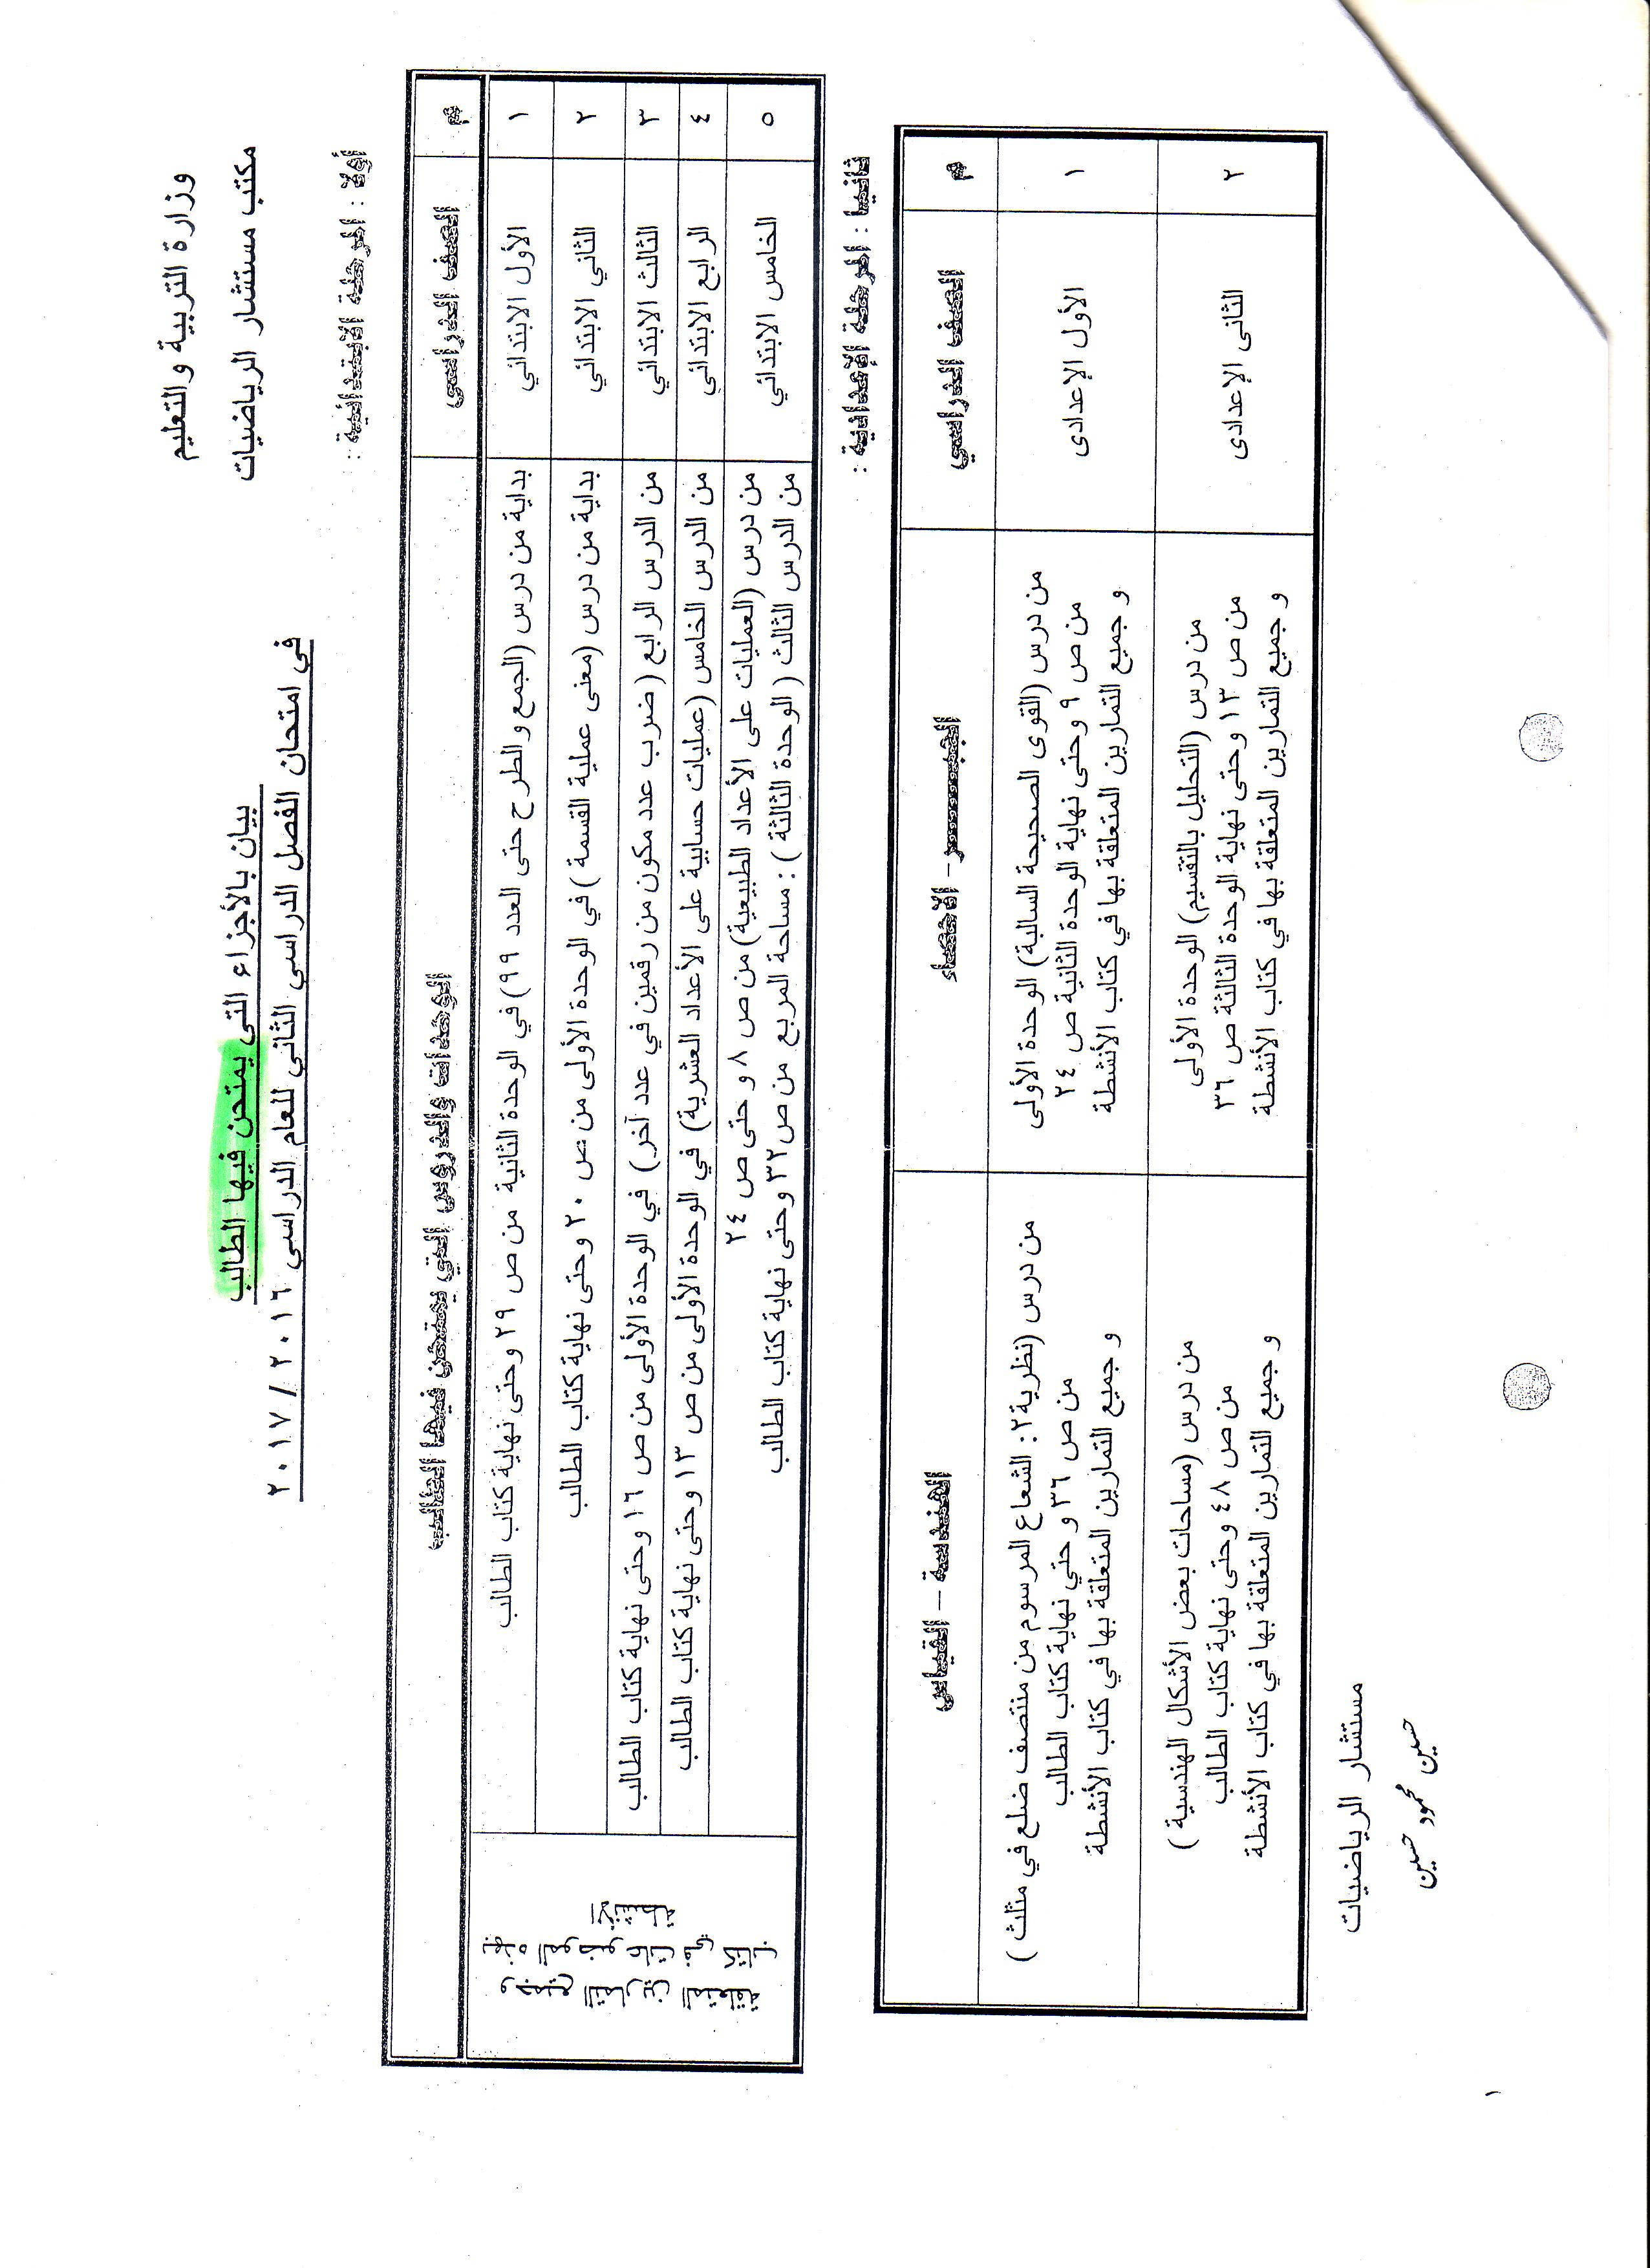 وزارة التربية والتعليم
مكتب مستشار الرياضيات
بيان بالأجزاء التى يمتحن فيها الطالب
في امتحان الفصل الدراسي الثاني للعام الدراسي ٢٠١٧/٢٠١٦
أولاً : المرحلة الابتدائية :
م
الصف الدراسى
الوحدات والدروس التي يمتحن فيها الطالب
١
الأول الابتدائي
بداية من درس (الجمع والطرح حتى العدد ٩٩) في الوحدة الثانية من ص ٢٩ وحتى نهاية كتاب الطالب
٢
الثاني الابتدائي
بداية من درس (معنى عملية القسمة ) في الوحدة الأولى من ص ٢٠ وحتى نهاية كتاب الطالب
٣
الثالث الابتدائي
من الدرس الرابع ( ضرب عدد مكون من رقمين في عدد آخر) في الوحدة الأولى من ص ١٦ وحتى نهاية كتاب الطالب
٤
الرابع الابتدائي
من الدرس الخامس (عمليات حسابية على الأعداد العشرية) في الوحدة الأولى من ص ١٣ وحتى نهاية كتاب الطالب
٥
الخامس الابتدائي
من درس (العمليات على الأعداد الطبيعية) من ص ٨ و حتى ص ٢٤
من الدرس الثالث ( الوحدة الثالثة ) : مساحة المربع من ص ٣٢ وحتى نهاية كتاب الطالب
وجميع التمارين المتعلقة
بهذه الموضوعات في كتاب
الأنشطة
ثانيا : المرحلة الإعدادية :
م
الصف الدراسي
الجبــــر - الاحصاء
الهندسة – القياس
١
الأول الإعدادى
من درس (القوى الصحيحة السالبة) الوحدة الأولى
من ص ٩ وحتى نهاية الوحدة الثانية ص ٢٤
و جميع التمارين المتعلقة بها في كتاب الأنشطة
من درس (نظرية ٢ : الشعاع المرسوم من منتصف ضلع في مثلث )
من ص ٣٦ و حتي نهاية كتاب الطالب
و جميع التمارين المتعلقة بها في كتاب الأنشطة
٢
الثانى الإعدادى
من درس (التحليل بالتقسيم) الوحدة الأولى
من ص ١٣ وحتى نهاية الوحدة الثالثة ص ٣٦
و جميع التمارين المتعلقة بها في كتاب الأنشطة
من درس (مساحات بعض الأشكال الهندسية )
من ص ٤٨ وحتى نهاية كتاب الطالب
و جميع التمارين المتعلقة بها في كتاب الأنشطة
مستشار الرياضيات
حسين محمود حسين
١